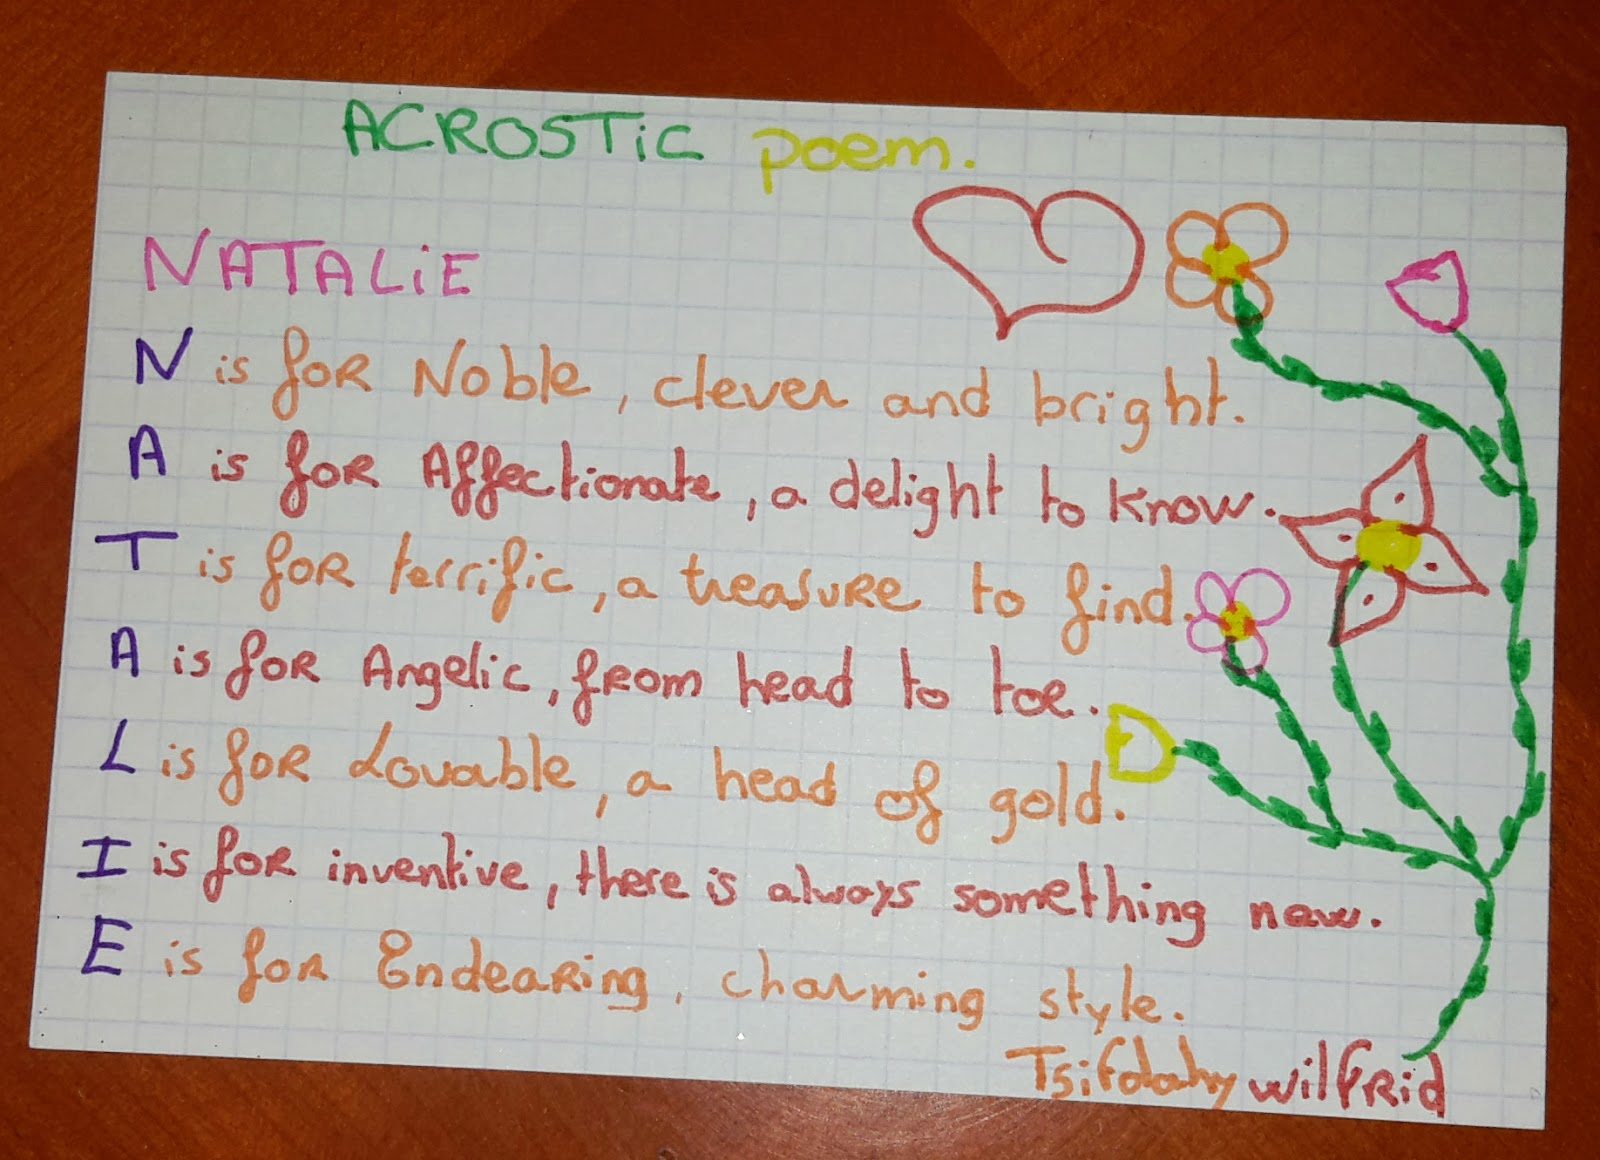 ACROSTiC poem.
NATALiE
N is foR Noble, clever and bright.
A is foR Affectionate, a delight to know.
T is foR terrific, a treasuRe to find.
A is foR Angelic, fRom head to toe.
L is foR Lovable, a head of gold.
I is foR inventive, there is always something new.
E is foR EndeaRing, charming style.
wilfRid